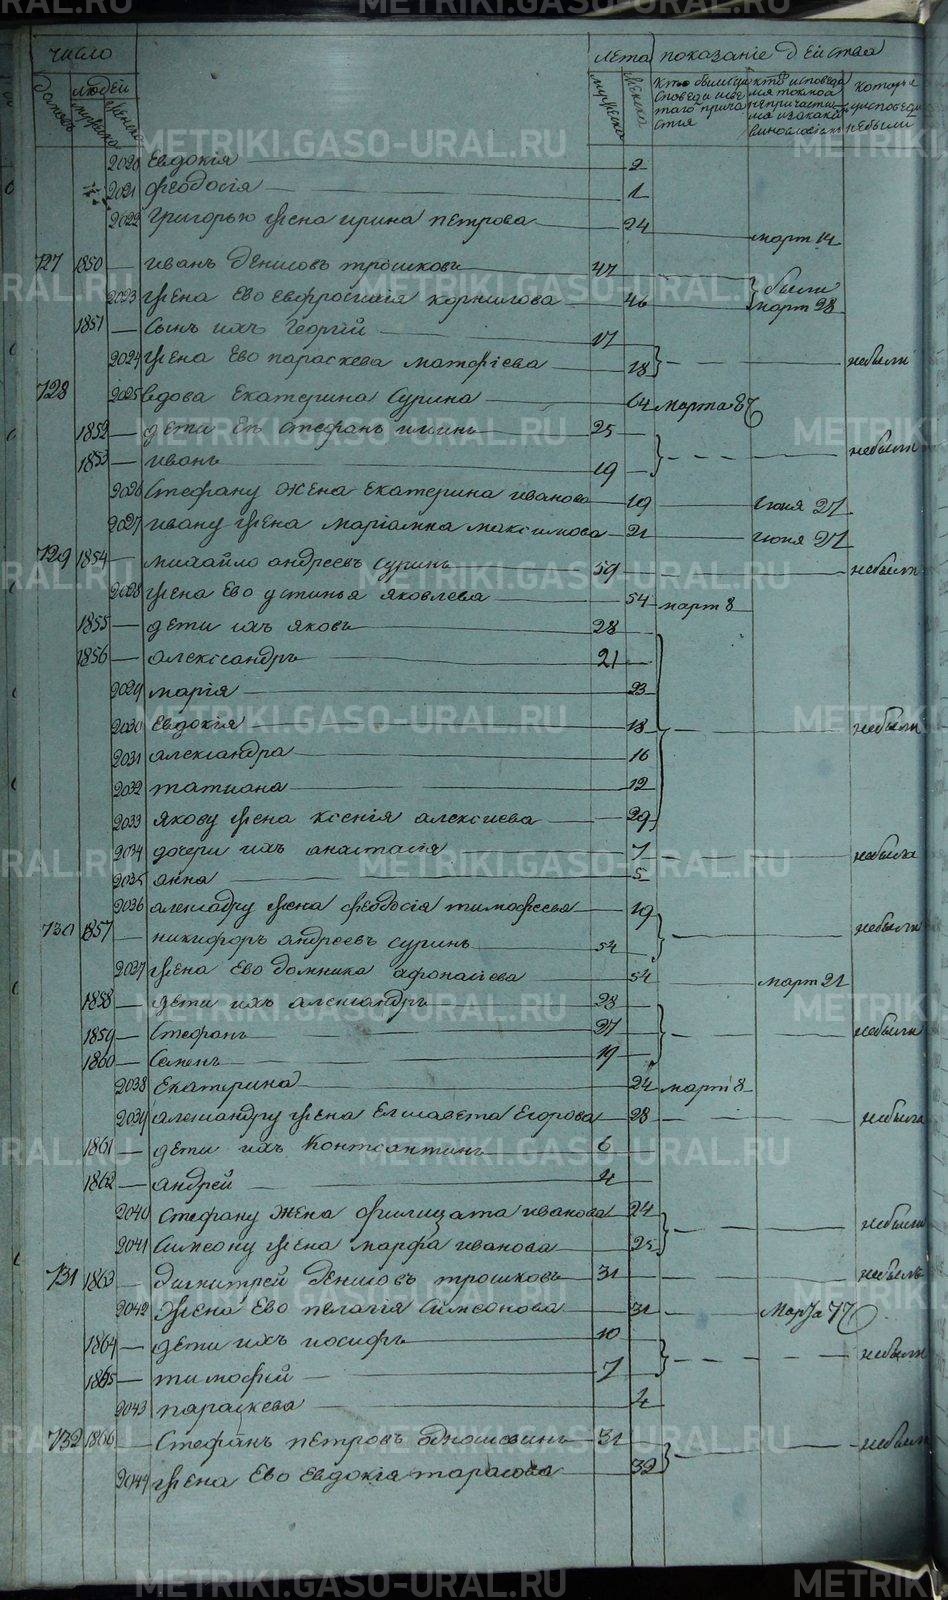 число лета показание действа
домовъ людей мужеска женска мужеска женска
Кто были у исповеди и святаго причастия
кто исповедался токмо а не причастился и за какими винословіями
которые у исповеди не были
2020 Евдокія 2
2021 Феодосія 1
2022 Григорью жена Ирина Петрова 24 март 14
727 1850 Иванъ Денисовъ Трошковъ 47 были
2023 жена Ево Евфросинія Корнилова 46 март 28
1851 Сынъ ихъ Георгій 17
2024 жена Ево Параскева Матфіева 18 небыли
728 2025 вдова Екатерина Сурина 64 марта
1852 дети Еѣ Стефанъ 25
1853 Иванъ 19 небыли
2026 Стефану жена Екатерина Иванова 19 Июня 27
2027 Ивану жена Маріамна Максимова 21 Июня 27
729 1854 Михайло Андреевъ Суринъ 59 небыли
2028 жена Ево Устинья Яковлева 54 март 8
1855 дети ихъ Яковъ 28
1856 Александръ 21
2029 Марія 23
2030 Евдокія 18 небыли
2031 Александра 16
2032 Татиана 12
2033 Якову жена Ксенія Алексиева 29
2034 дочери ихъ Анастасія 7 небыла
2035 Анна 5
2036 Александру жена Феодосія Тимофеева 19
730 1857 Никифоръ Андреевъ Суринъ 54 небыли
2037 жена Ево Домника Афонасиева 54 март 21
1858 дети ихъ Александръ 28
1859 Стефанъ 27 небыли
1860 Семенъ 19
2038 Екатерина 24 март 8
2039 Александру жена Елисавета Егорова 28 небыла
1861 дети ихъ Константинъ 6
1862 Андрей 4
2040 Стефану жена Филицата Иванова 24 небыли
2041 Симеону жена Марфа Иванова 25
731 1863 Димитрей Денисовъ Трошковъ 31 небылъ
2042 жена Ево Пелагія Симеонова 31 Марта 17
1864 дети ихъ Иосифъ 10
1865 Тимофей 7 небыли
2043 Параскева 4
732 1866 Стефанъ Петровъ 31 небыли
2044 жена Ево Евдокія Тарасова 32
METRIKI.GASO-URAL.RU